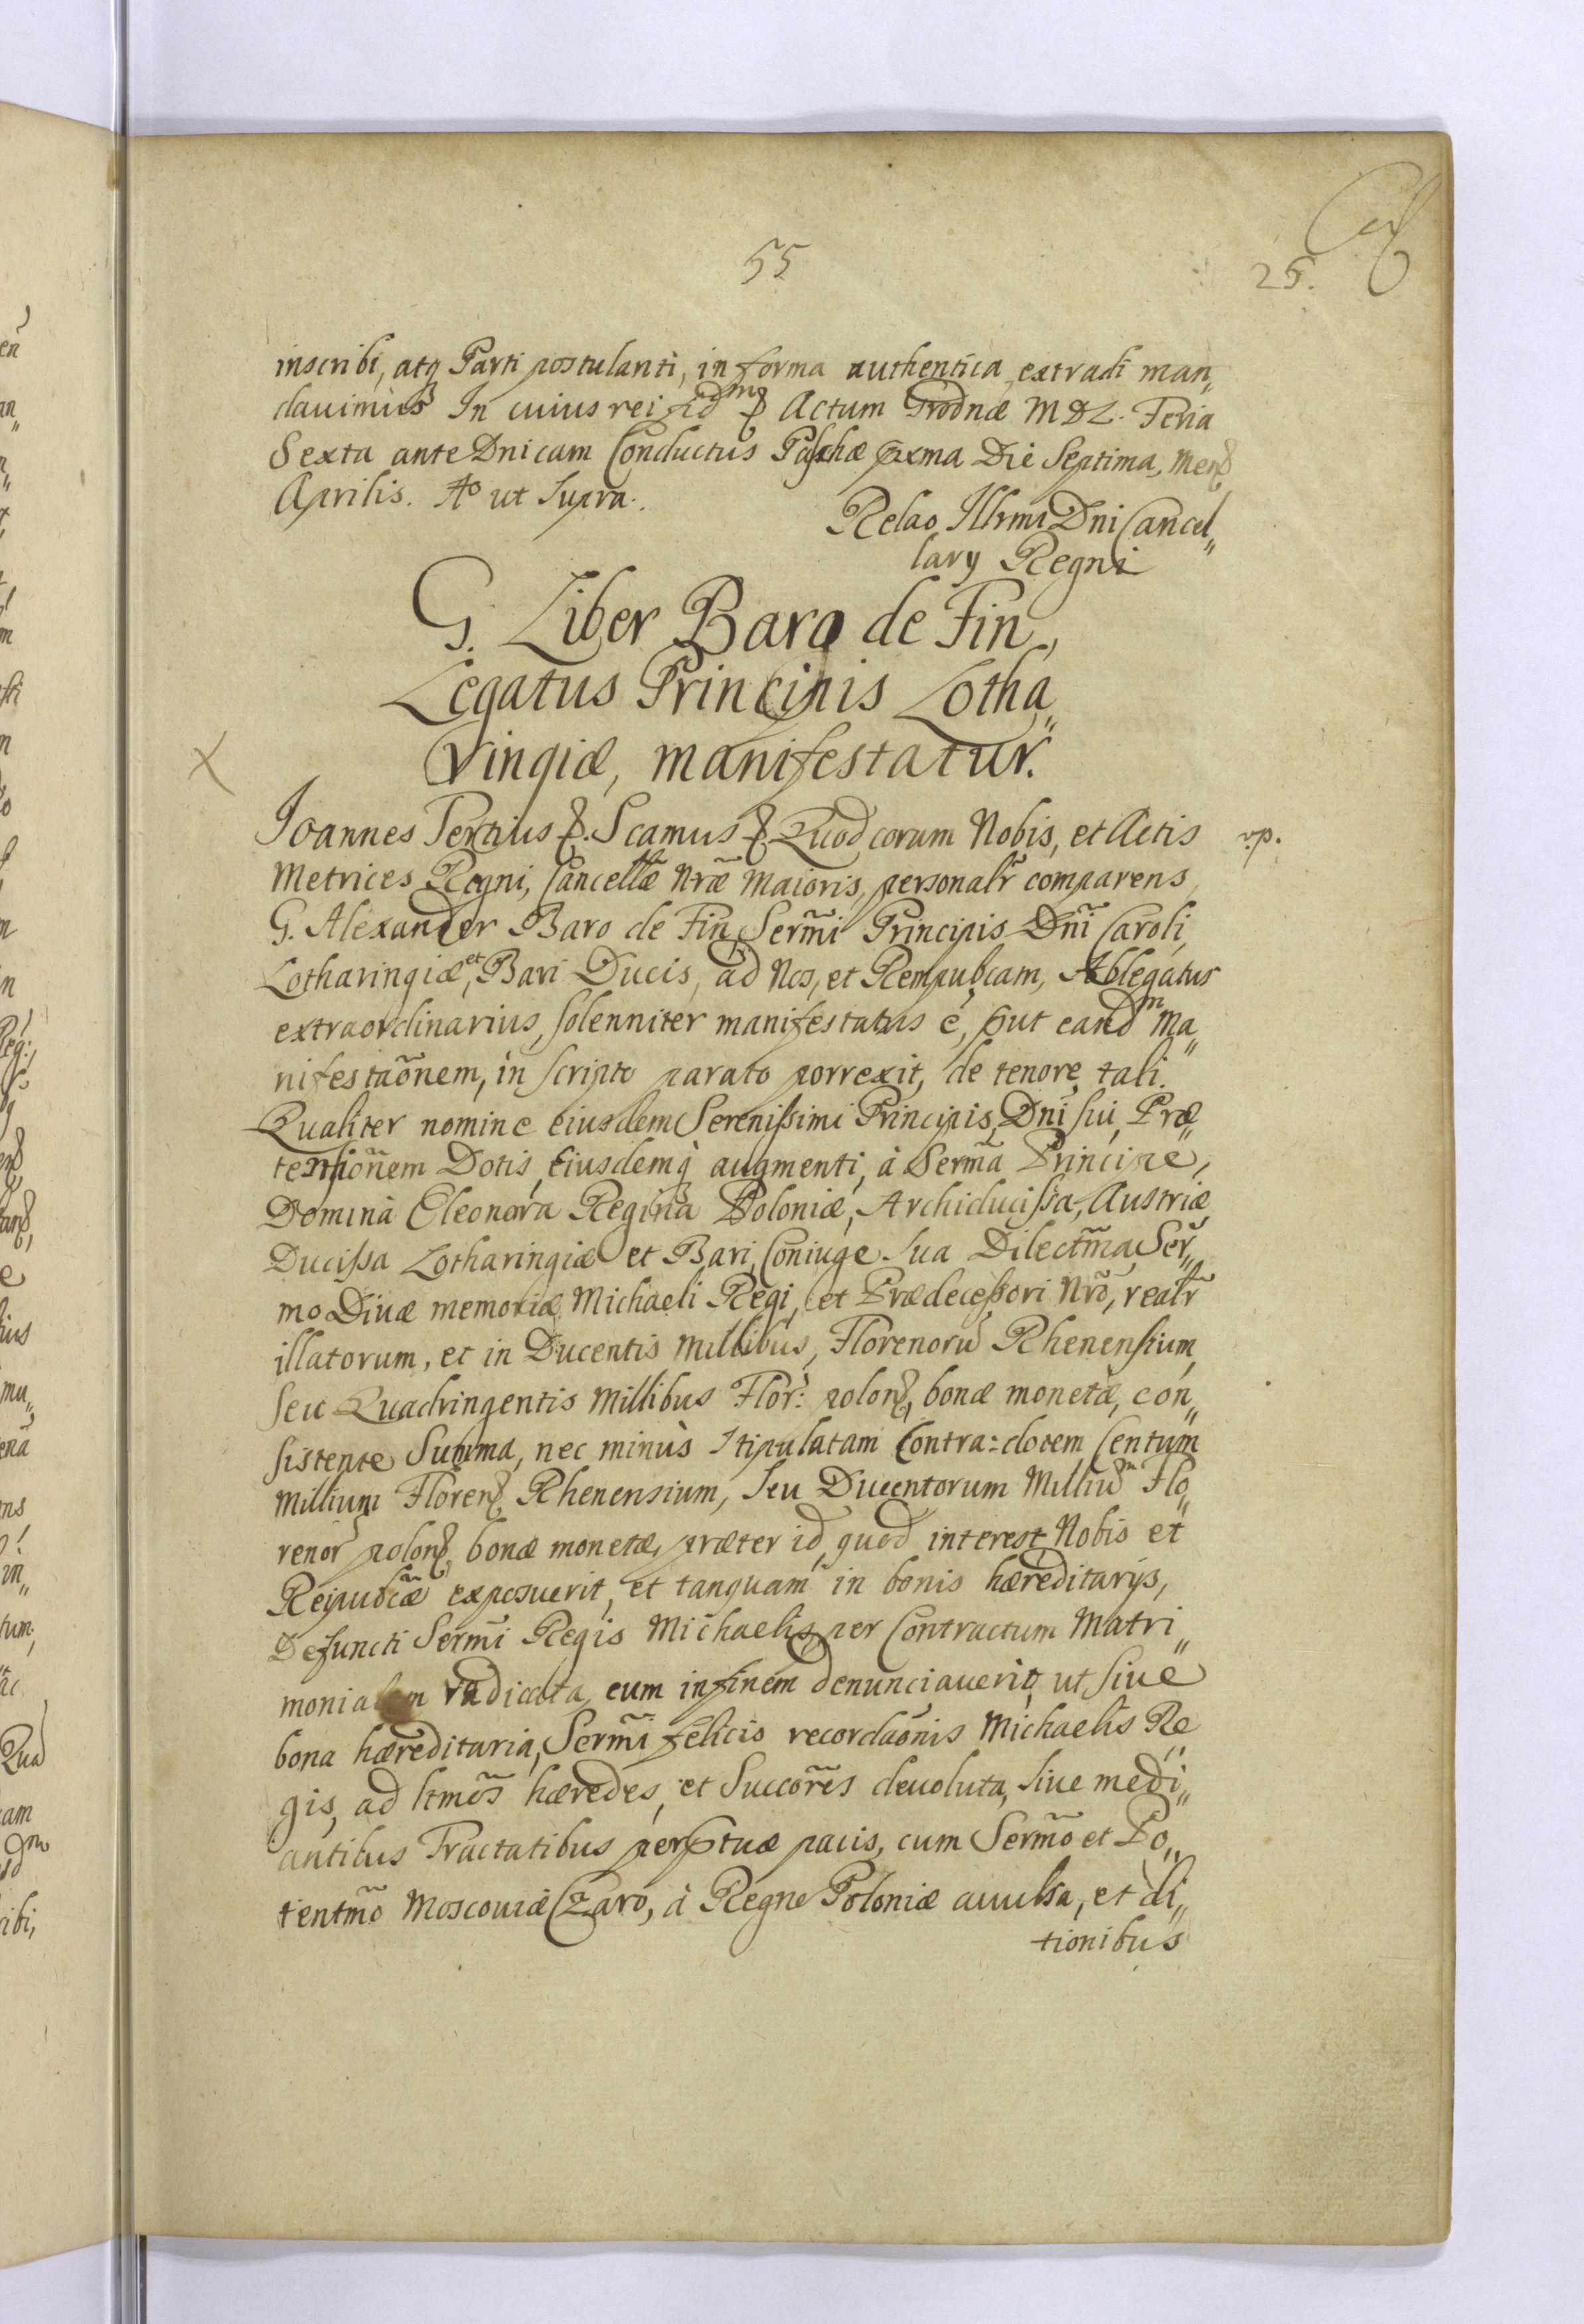 55
25.
inscribi, atq Parti postulanti, in forma authentica extradi man„
dauimus In cuius rei fidm & Actum Grodnæ M D L. Feria
Sexta ante Dnicam Conductus Paschæ pxma Die Septima, Mens
Aprilis. Ao ut Supra.
Relao Illrmi Dni Cancel„
lary Regni
G. Liber Baro de Fin,
Legatus Principis Lotha„
ringiæ, manifestatur.
Joannes Tertius &. Scamus &. Quod coram Nobis, et Actis
vp.
Metrices Regni, Cancellæ Nræ Maioris, personalr comparens
G. Alexander Baro de Fin, Sermi Principis Dni Caroli,
Lotharingiæ, et Bari Ducis, ad Nos, et Rempubcam, Ablegatus
extraordinarius, solenniter manifestatus ẽ, put eandm Ma„
nifestaõnem, in scripto parato porrexit, de tenore tali.
Qualiter nomine eiusdem Serenissimi Principis, Dni sui, Præ„
tensionem Dotis, Eiusdemq augmenti, à Sermã Principe,
Domina Eleonora Regina Poloniæ, Archiducissa, Austriæ
Ducissa Lotharingiæ et Bari, Coniuge sua Dilectmã, Ser„
mo Diuæ memoriæ Michaeli Regi, et Prædecessori Nrõ, realr
illatorum, et in Ducentis Millibus, Florenorũ Rhenensium,
seu Quadringentis Millibus Flor: polon, bonæ monetæ, con„
sistente Summa, nec minùs Stipulatam Contra-dotem Centum
Millium Floren Rhenensium, seu Ducentorum Millium Flo„
renor polon bonæ monetæ, præter id, quod interest Nobis et
Reipubcæ exposuerit, et tanquam in bonis hæreditarijs,
Defuncti Sermi Regis Michaelis, per Contractum Matri„
monialem radicata, eum in finem denunciauerit, ut siue
bona hæreditaria, Sermi fælicis recordaõnis Michaelis Re„
gis, ad ltmõs hæredes, et Succores deuoluta, siue medi„
antibus Tractatibus perptuæ pacis, cum Sermo et Po„
tentmo Moscouiæ Czaro, à Regno Poloniæ auulsa, et di„
tionibus